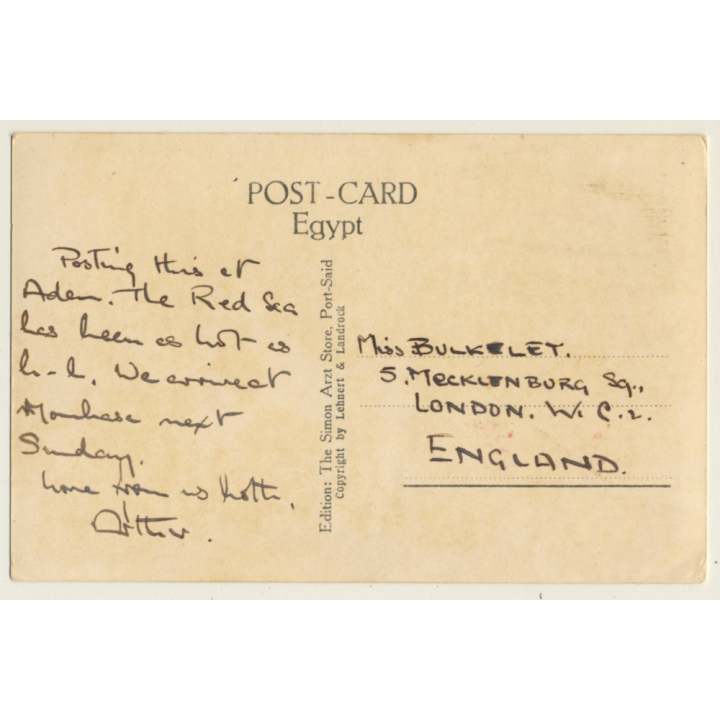 POST-CARD
Egypt
Posting this at
Aden. The Red Sea
has been as hot as
h-l. We arrive at
Mombasa next
Sunday.
Love from us both,
Arthur.
Edition: The Simon Arzt Store, Port-Said
Copyright by Lehnert & Landrock
Miss BULKELEY.
5. MECKLENBURG Sq.,
LONDON. W. C. 2.
ENGLAND.